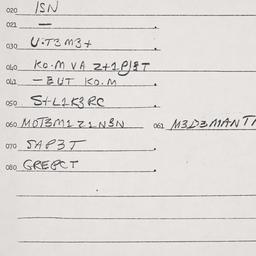 020 ISN
021 —
030 U.T3M3+
040 KO.M VA Z+1PJ3T
041 —BUT KO.M
050 S+L1K3RC
060 MOT3M1Z1N3N 061 M3D3MANTI
070 SAP3T
080 GREPCT